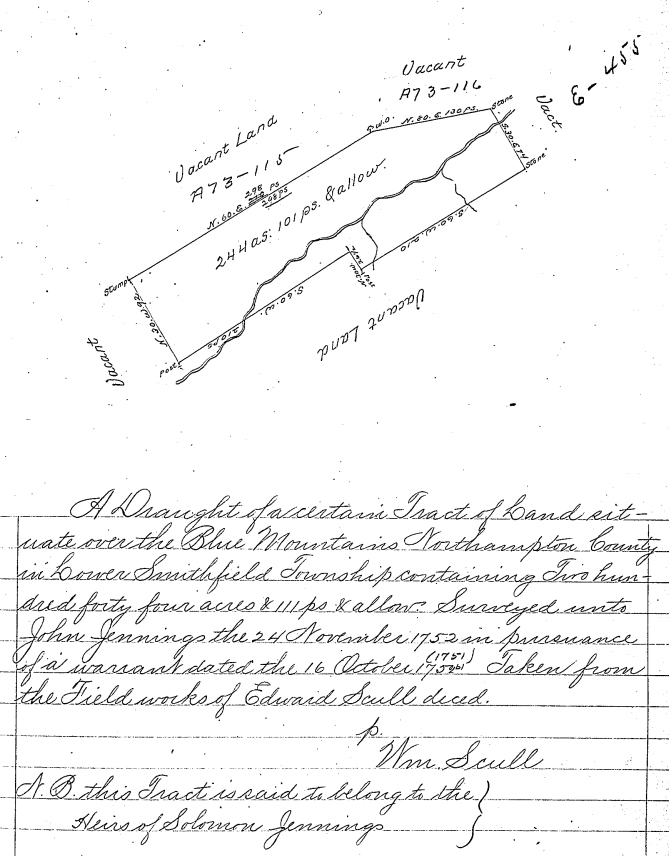 E-455
Vacant
A73-116
Vact.
Vacant Land
A73-115
Stone
N.80.E.130 ps.
S.30.E.74
Stone
298 ps
N.60.E.
268 ps
244 as: 101 ps. & allow.
S.60.W.210
Stump
N.30.W.92
S.60.W.
210 ps
Post
Vacant
Vacant Land
A Draught of a certain Tract of Land sit-
uate over the Blue Mountains Northampton County
in Lower Smithfield Township containing Two hun-
dred forty four acres & 111 ps & allow. Surveyed unto
John Jennings the 24 November 1752 in pursuance
(1751)
of a warrant dated the 16 October Taken from
the Field works of Edward Scull deced.
p.
Wm. Scull
N.B. this Tract is said to belong to the
Heirs of Solomon Jennings